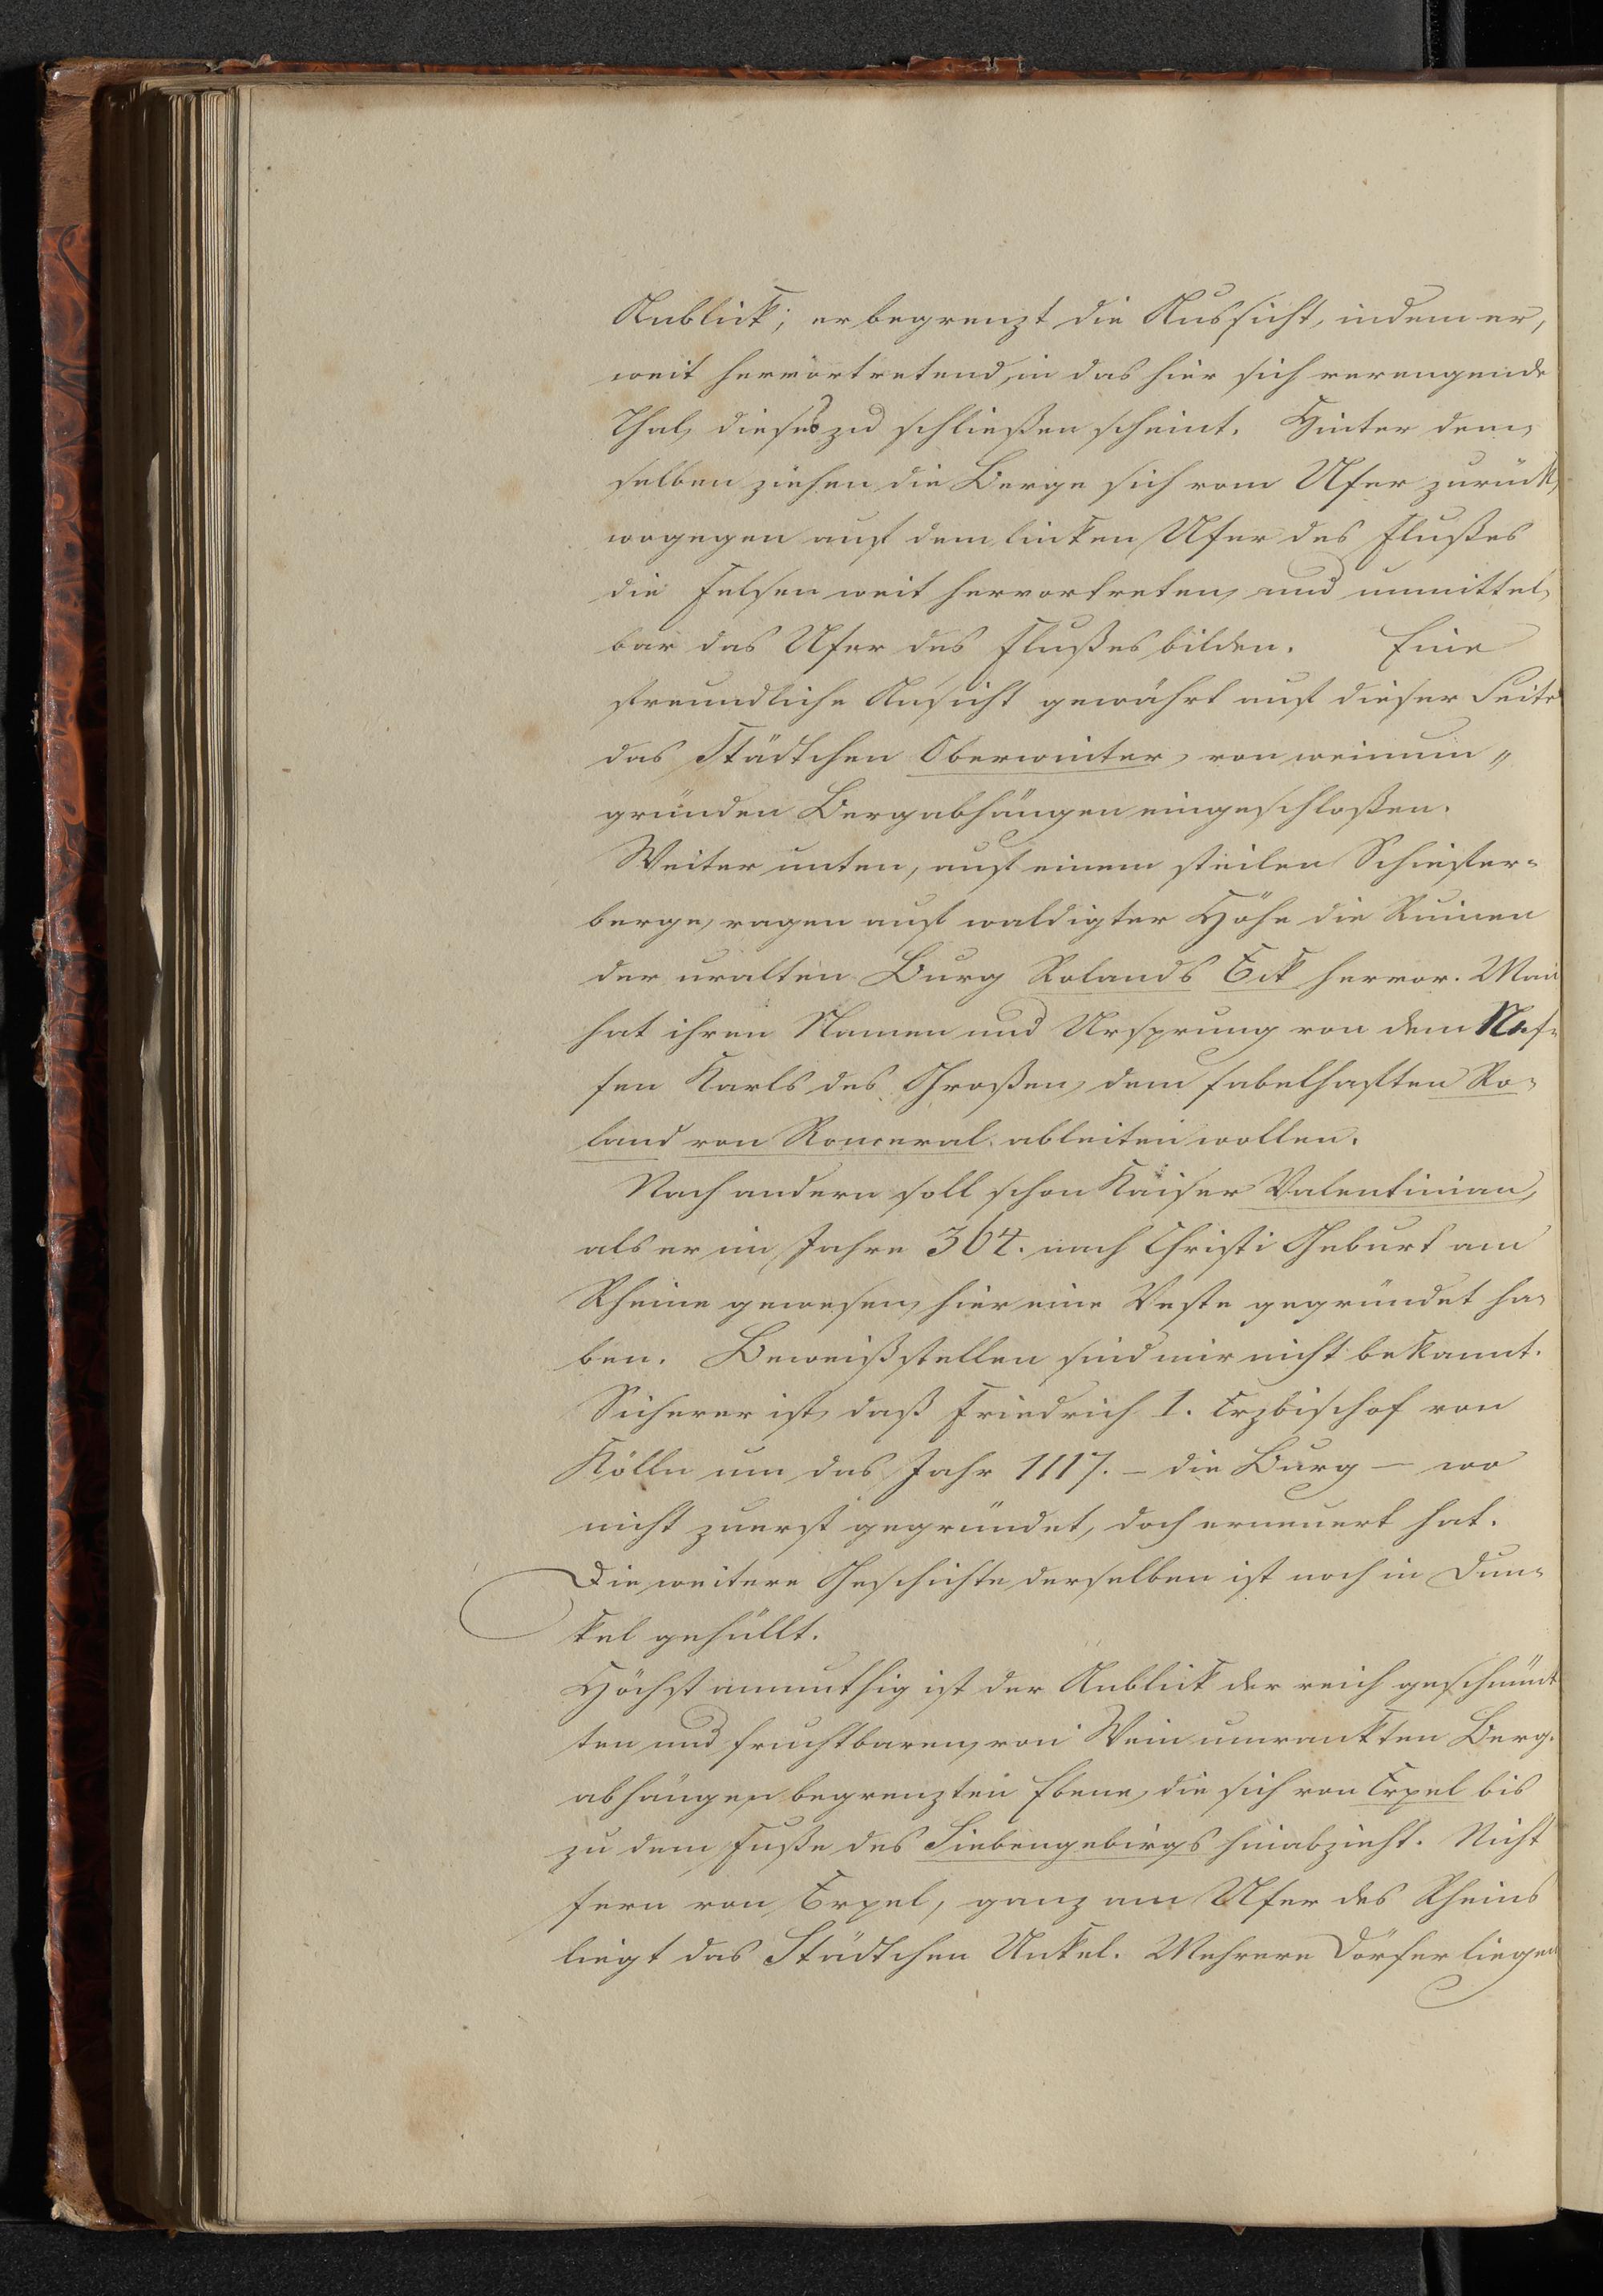 Anblick; er begrenzt die Aussicht, indem er,
weit hervortretend, in das hier sich verengende
Thal, dieses zu schließen scheint. Hinter dem,
selben ziehen die Berge sich vom Ufer zurück,
wogegen auf dem linken Ufer des Flußes
die Felsen weit hervortreten, und unmittel,
bar das Ufer des Flußes bilden. Eine
freundliche Ansicht gewährt auf dieser Seite
das Städtchen Oberwinter, von weinum„
gründen Bergabhängen eingeschloßen.
Weiter unten, auf einem steilen Schiefer=
berge, ragen auf waldigter Höhe die Ruinen
der uralten Burg Rolands Eck hervor. Man
hat ihren Namen und Ursprung von dem Nef=
fen Karls des Großen, dem fabelhaften Ro=
land von Ronceval. ableiten wollen.
Nach andern soll schon Kaiser Valentinian,
als er im Jahre 364. nach Christi Geburt am
Rheine gewesen, hier eine Veste gegründet ha=
ben. Beweißstellen sind mir nicht bekannt.
Sicherer ist, daß Friedrich I. Erzbischof von
Kölln um das Jahr 1117. – die Burg – wo
nicht zuerst gegründet, doch erneuert hat.
Die weitere Geschichte derselben ist noch in Dun=
kel gehüllt.
Höchst anmuthig ist der Anblick der reich geschmück
ten und fruchtbaren, von Wein umrankten Berg.
abhängen begrenzten Ebene, die sich von Erpel bis
zu dem Fuße des Siebengebirgs hinabzieht. Nicht
fern von Erpel, ganz am Ufer des Rheins
liegt das Städtchen Unkel. Mehrere Dörfer liegen